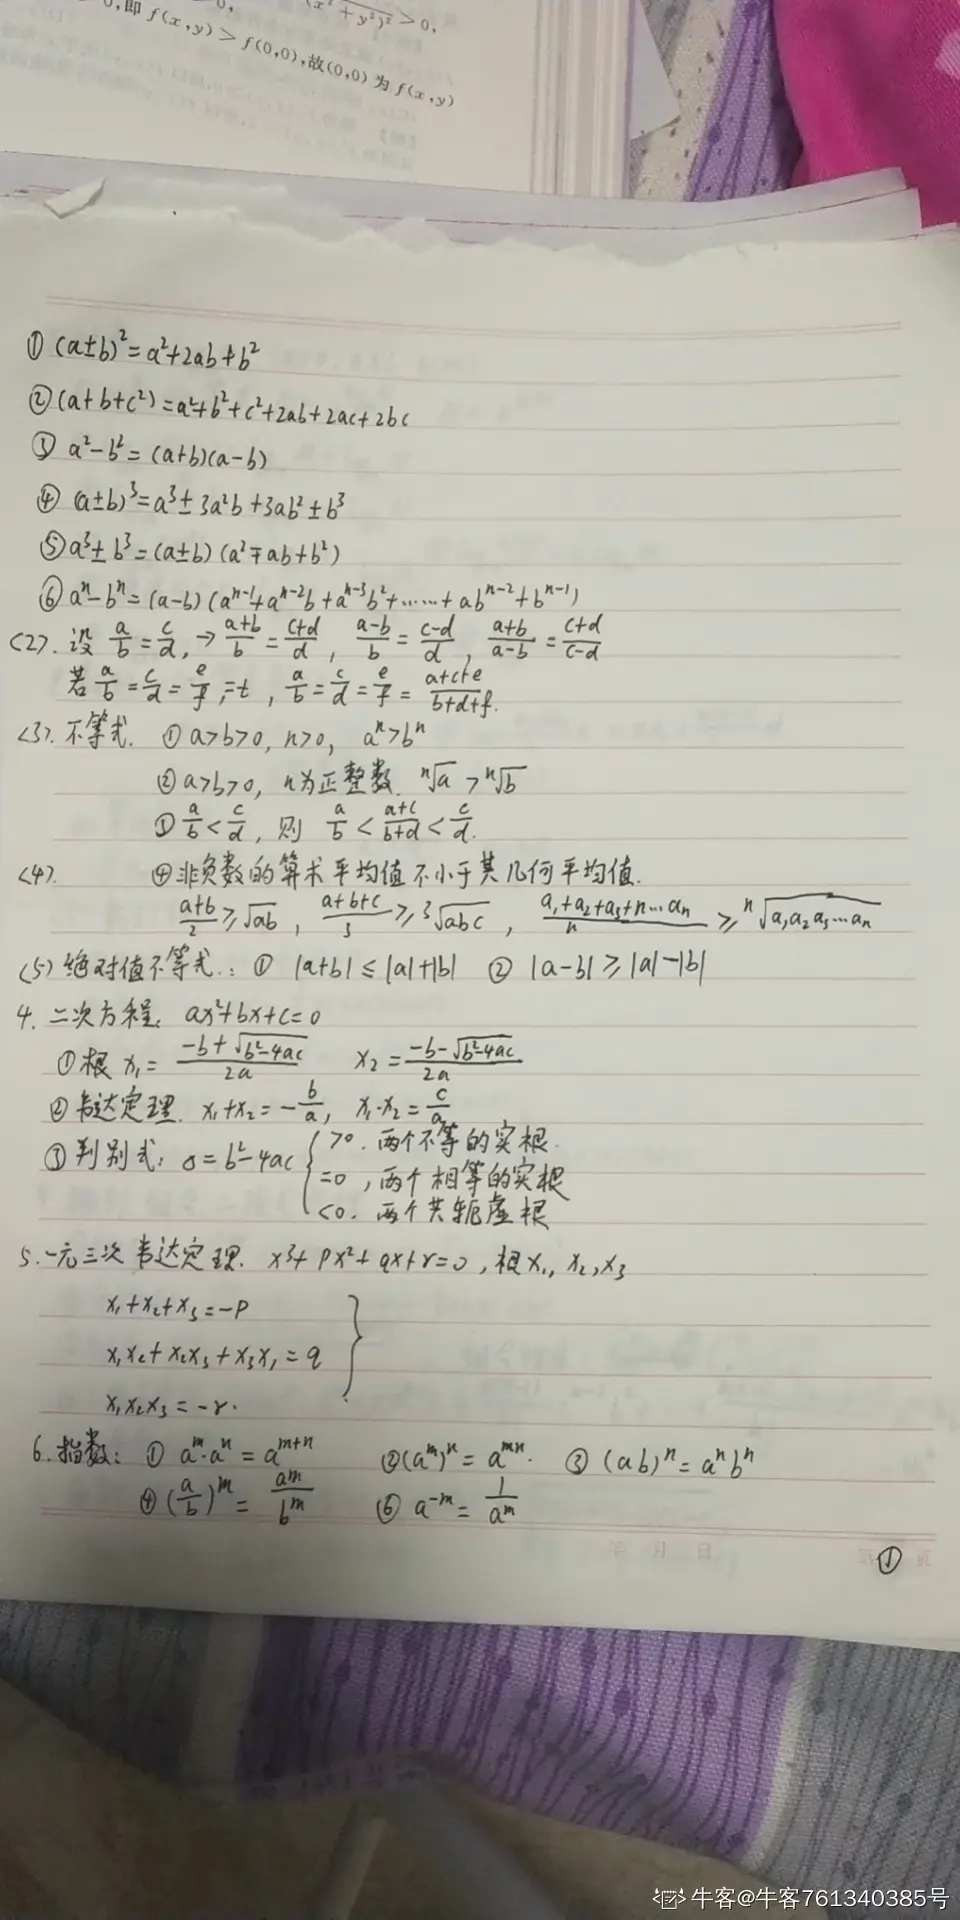 (x²+y²)² >0,
0,即 f(x,y)>f(0,0),故(0,0)为 f(x,y)
① (a±b)²=a²+2ab+b²
② (a+b+c²)=a²+b²+c²+2ab+2ac+2bc
③ a²-b²=(a+b)(a-b)
④ (a±b)³=a³±3a²b+3ab²±b³
⑤ a³±b³=(a±b)(a²∓ab+b²)
⑥ aⁿ-bⁿ=(a-b)(aⁿ⁻¹+aⁿ⁻²b+aⁿ⁻³b²+……+abⁿ⁻²+bⁿ⁻¹)
<2>. 设 a/b=c/d, → (a+b)/b=(c+d)/d, (a-b)/b=(c-d)/d, (a+b)/(a-b)=(c+d)/(c-d)
若 a/b=c/d=e/f,=t, a/b=c/d=e/f=(a+c+e)/(b+d+f).
<3>. 不等式. ① a>b>0, n>0, aⁿ>bⁿ
② a>b>0, n为正整数. ⁿ√a >ⁿ√b
③ a/b<c/d, 则 a/b<(a+c)/(b+d)<c/d.
<4>. ④ 非负数的算术平均值不小于其几何平均值.
(a+b)/2≥√ab, (a+b+c)/3≥³√abc, (a₁+a₂+a₃+n…aₙ)/n≥ⁿ√a₁a₂a₃…aₙ
<5> 绝对值不等式: ① |a+b|≤|a|+|b| ② |a-b|≥|a|-|b|
4. 二次方程: ax²+bx+c=0
① 根 x₁=(-b+√b²-4ac)/2a x₂=(-b-√b²-4ac)/2a
② 韦达定理. x₁+x₂=-b/a, x₁·x₂=c/a
③ 判别式: Δ=b²-4ac { >0. 两个不等的实根.
=0, 两个相等的实根
<0. 两个共轭虚根
5. 一元三次韦达定理. x³+px²+qx+r=0, 根x₁, x₂, x₃
x₁+x₂+x₃=-p
x₁x₂+x₂x₃+x₃x₁=q
x₁x₂x₃=-r.
6. 指数: ① aᵐ·aⁿ=aᵐ⁺ⁿ ② (aᵐ)ⁿ=aᵐⁿ. ③ (ab)ⁿ=aⁿbⁿ
④ (a/b)ᵐ=aᵐ/bᵐ ⑥ a⁻ᵐ=1/aᵐ
年 月 日 ① 页
牛客@牛客761340385号